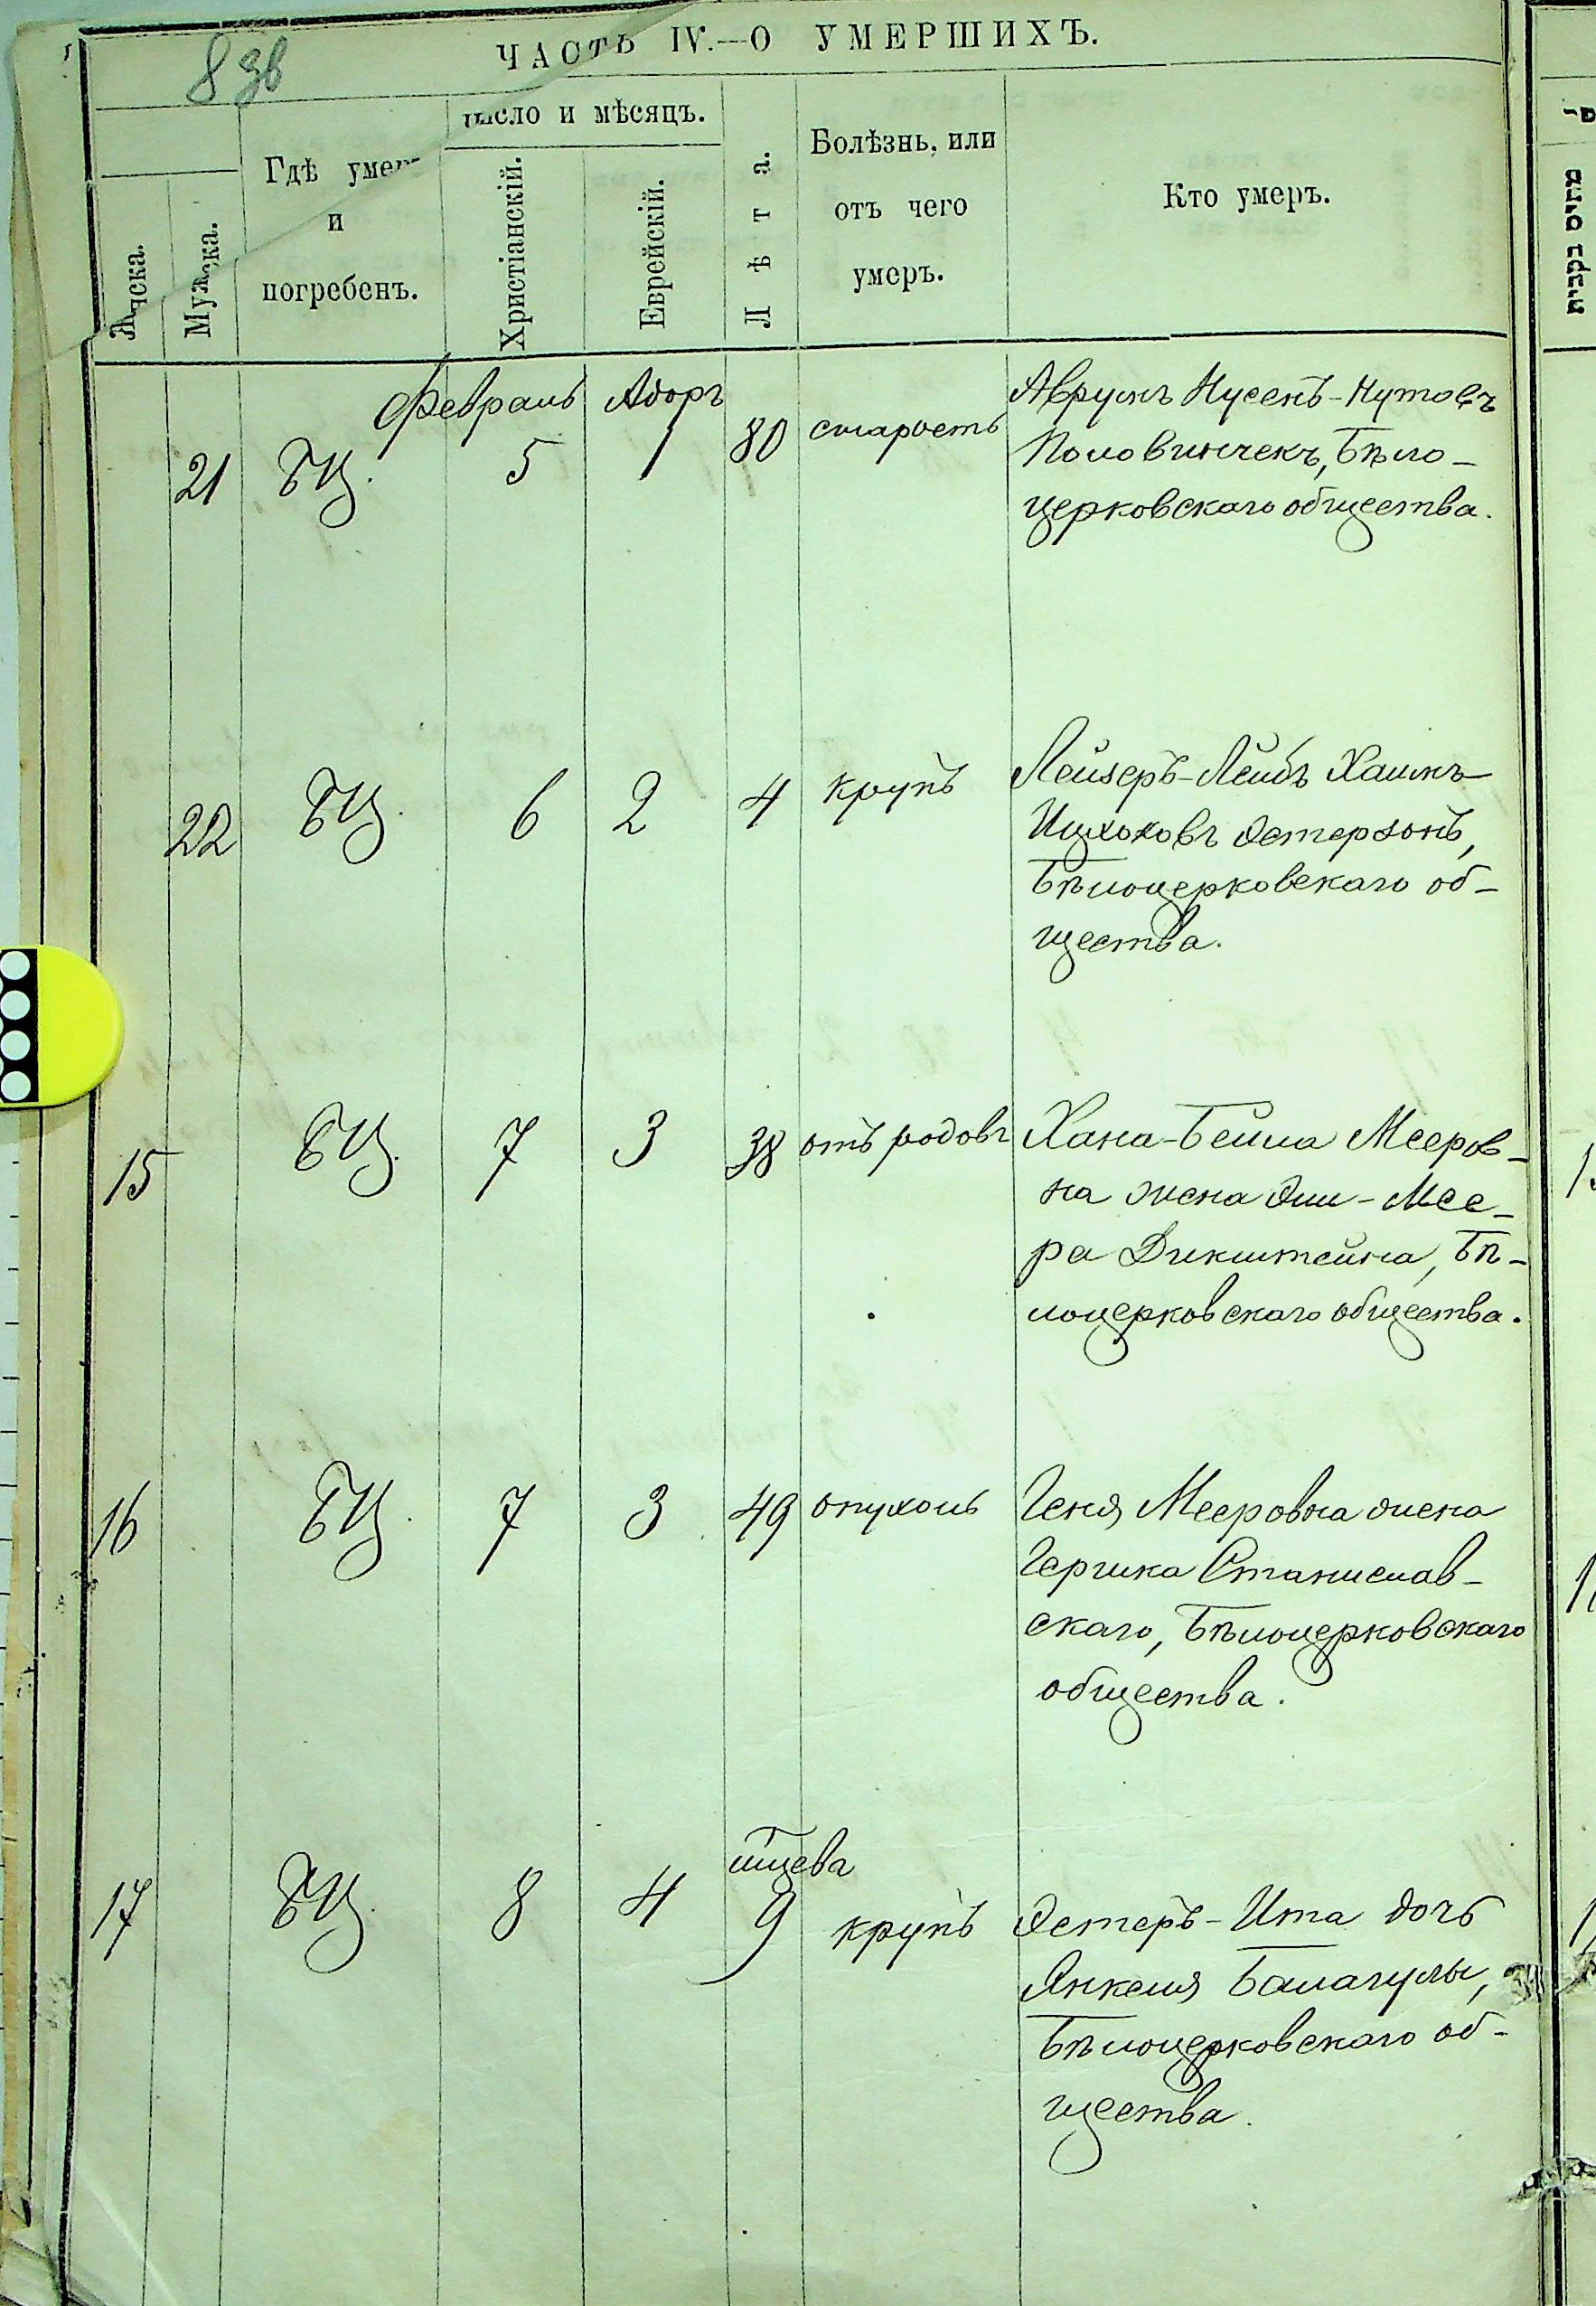 8 зв
ЧАСТЬ IV.—О УМЕРШИХЪ.
Женска.
Мужска.
Гдѣ умеръ
и
погребенъ.
Число и мѣсяцъ.
Христіанскій.
Еврейскій.
Лѣта.
Болѣзнь, или
отъ чего
умеръ.
Кто умеръ.
Февраль Адоръ
21 БЦ. 5 1 80 старость
Аврумъ Нусенъ-Нутовъ
Половинчекъ, Бѣло-
церковскаго общества.
22 БЦ. 6 2 4 крупъ
Лейзеръ-Лейбъ Хаимъ
Ицхоковъ Остерзонъ,
Бѣлоцерковскаго об-
щества.
15 БЦ. 7 3 38 отъ родовъ
Хана-Бейла Мееров-
на жена Эли-Мее-
ра Дикштейна, Бѣ-
лоцерковскаго общества.
16 БЦ. 7 3 49 опухоль
Геня Мееровна жена
Гершка Станислав-
скаго, Бѣлоцерковскаго
общества.
17 БЦ. 8 4 9 крупъ
Эстеръ-Ита дочь
Янкеля Балагулы,
Бѣлоцерковскаго об-
щества.